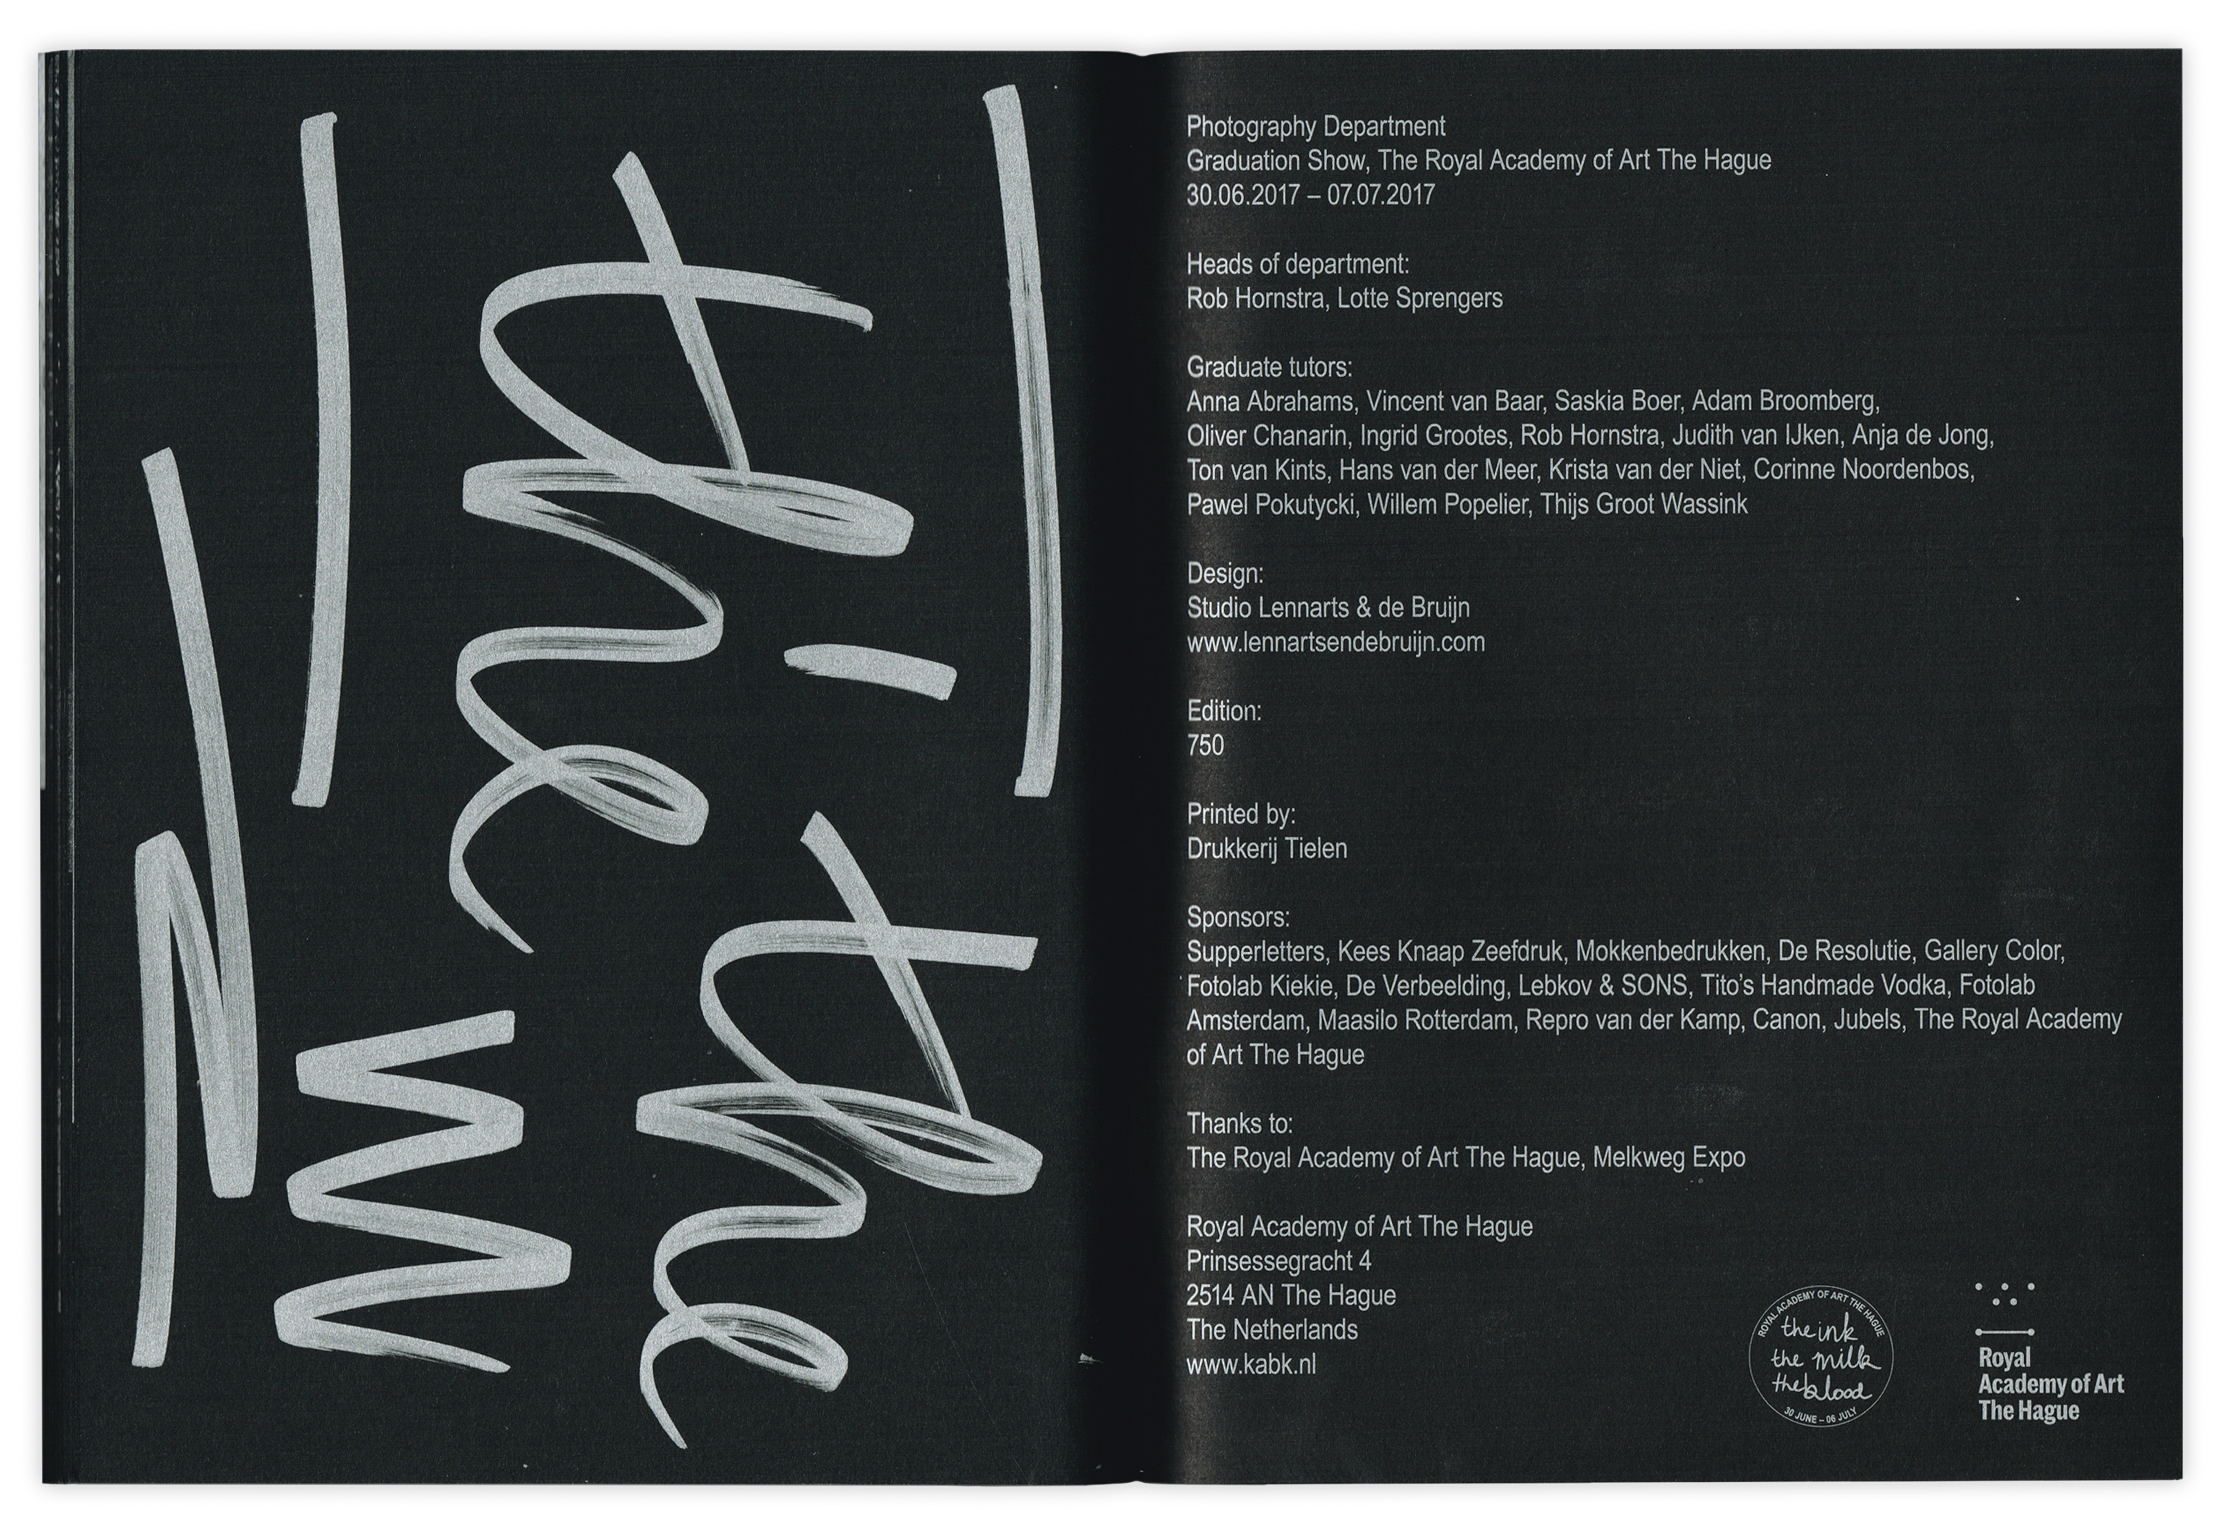 the
the
Photography Department
Graduation Show, The Royal Academy of Art The Hague
30.06.2017 – 07.07.2017
Heads of department:
Rob Hornstra, Lotte Sprengers
Graduate tutors:
Anna Abrahams, Vincent van Baar, Saskia Boer, Adam Broomberg,
Oliver Chanarin, Ingrid Grootes, Rob Hornstra, Judith van IJken, Anja de Jong,
Ton van Kints, Hans van der Meer, Krista van der Niet, Corinne Noordenbos,
Pawel Pokutycki, Willem Popelier, Thijs Groot Wassink
Design:
Studio Lennarts & de Bruijn
www.lennartsendebruijn.com
Edition:
750
Printed by:
Drukkerij Tielen
Sponsors:
Supperletters, Kees Knaap Zeefdruk, Mokkenbedrukken, De Resolutie, Gallery Color,
Fotolab Kiekie, De Verbeelding, Lebkov & SONS, Tito’s Handmade Vodka, Fotolab
Amsterdam, Maasilo Rotterdam, Repro van der Kamp, Canon, Jubels, The Royal Academy
of Art The Hague
Thanks to:
The Royal Academy of Art The Hague, Melkweg Expo
Royal Academy of Art The Hague
Prinsessegracht 4
2514 AN The Hague
The Netherlands
www.kabk.nl
ROYAL ACADEMY OF ART THE HAGUE
the ink
the milk
the blood
30 JUNE – 06 JULY
Royal
Academy of Art
The Hague